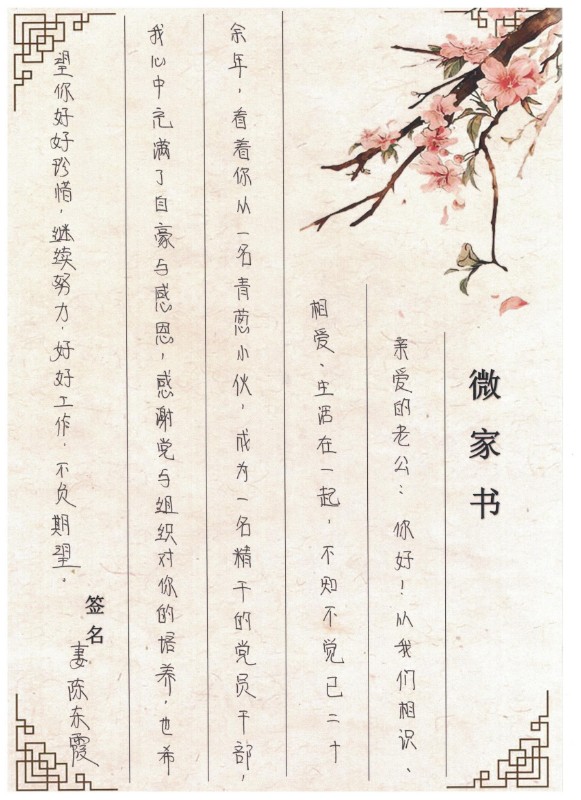 微家书
亲爱的老公：你好！从我们相识、
相爱、生活在一起，不知不觉已二十
余年，看着你从一名青葱小伙，成为一名精干的党员干部，
我心中充满了自豪与感恩，感谢党与组织对你的培养，也希
望你好好珍惜，继续努力，好好工作，不负期望。
签名
妻陈东霞